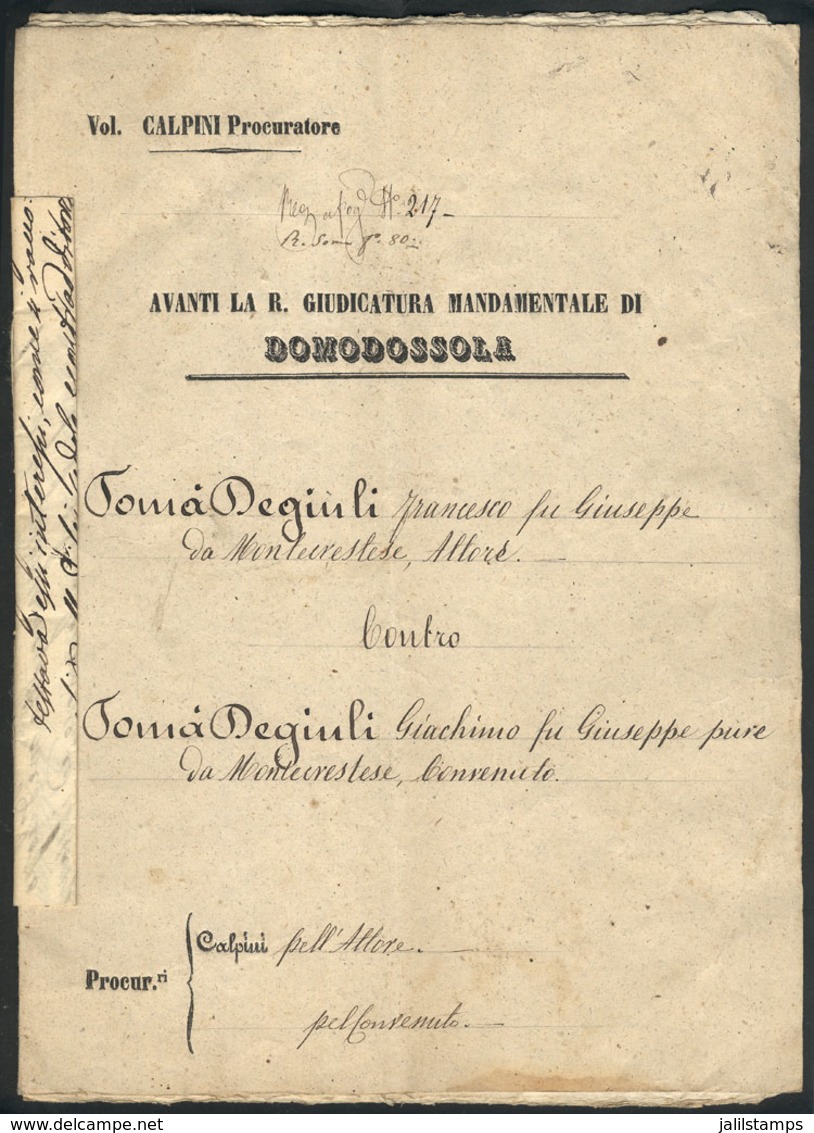 Vol. CALPINI Procuratore
N.º 217
80
AVANTI LA R. GIUDICATURA MANDAMENTALE DI
DOMODOSSOLA
Tomá Degiuli Francesco fu Giuseppe
da Montecrestese, Attore.
Contro
Tomá Degiuli Giachimo fu Giuseppe pure
da Montecrestese, Convenuto.
Procur.ri
Calpini pell'Attore.
pel Convenuto.
interessi, come
delcampe.net
jalilstamps